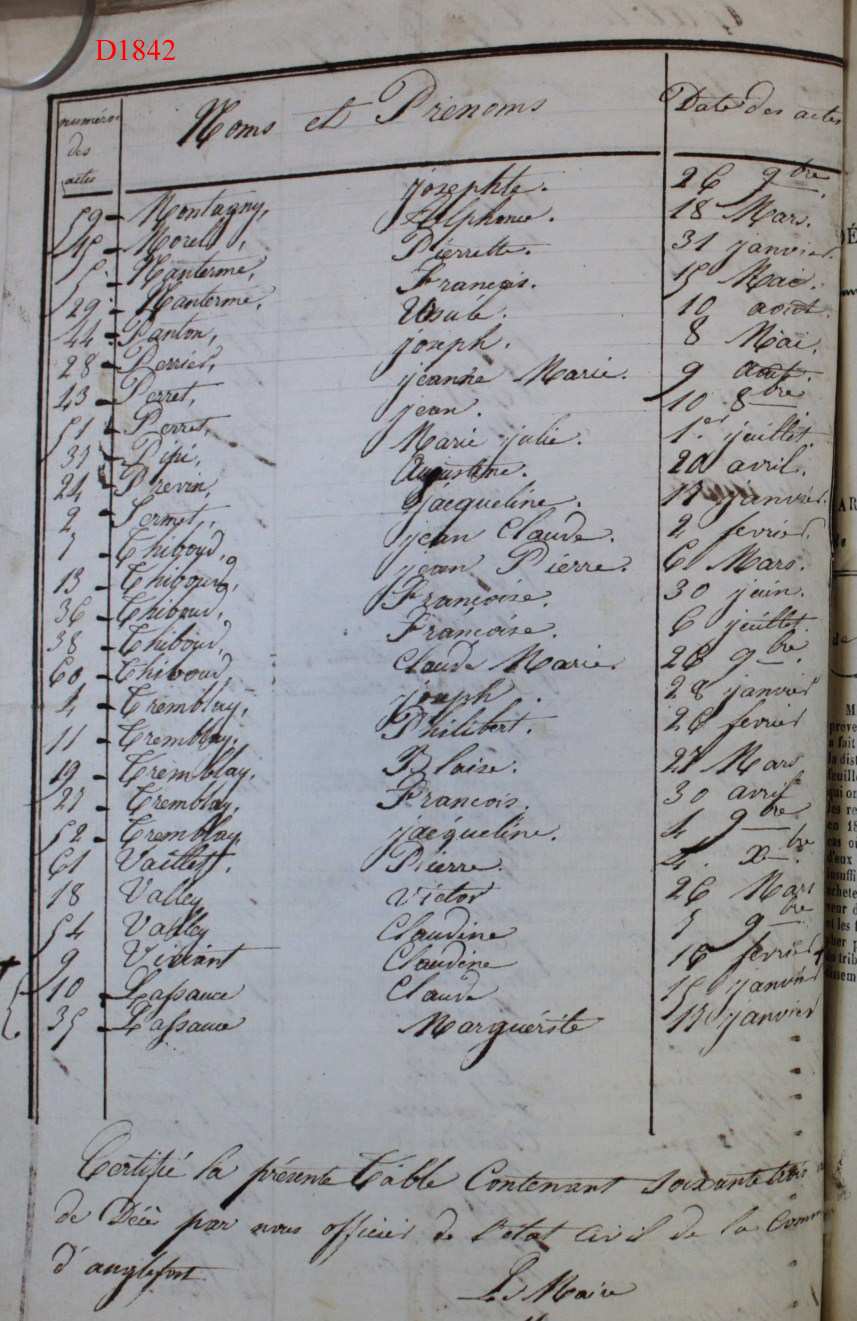 D1842
numéros des actes Noms et Prénoms Date des actes
59 Montagny, josephte. 26 9bre.
45 Morel, Alphonse. 18 Mars.
5 Nanterme, Pierrette. 31 janvier.
29 Nanterme, François. 15 Mai.
44 Panton, Ursule. 10 août.
28 Perrier, joseph. 8 Mai.
43 Perret, jeanne Marie. 9 août.
51 Perret, jean. 10 8bre
37 Pipi, Marie julie. 1er juillet.
24 Prévin, Augustine. 20 avril.
2 Sermet, Jacqueline. 17 janvier.
7 Thiboud, jean Claude. 2 fevrier.
13 Thiboud, jean Pierre. 6 Mars.
36 Thiboud, Françoise. 30 juin.
38 Thiboud, Françoise. 6 juillet.
60 Thiboud, Claude Marie. 28 9bre.
4 Tremblay, joseph. 28 janvier
11 Tremblay, Philibert. 26 fevrier
19 Tremblay, Blaise. 27 Mars
27 Tremblay, François. 30 avril
52 Tremblay jacqueline. 4 9bre
61 Vaillet. Pierre. 4. Xbre.
18 Valley Victor 26 Mars
54 Valley Claudine 5 9bre
9 Viviant Claudine 18 fevrier
10 Lassauce Claude 15 janvier
35 Lassauce Marguérite 17 janvier
Certifié la présente Table Contenant soixante trois
de Décè par nous officier de l'état Civil de la Comm
d'anglefort
Le Maire